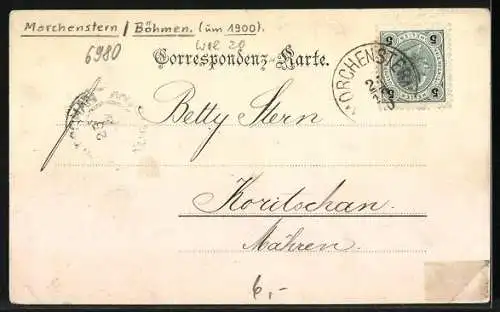 Marchenstern / Böhmen. (um 1900).
6980
Correspondenz-Karte.
MORCHENSTERN
5 5
5 5
Betty Stern
Koritschan.
Mähren.
6,-